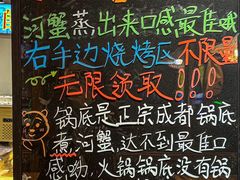 河蟹蒸出来口感最佳哦
右手边烧烤区不限量
无限领取!!!
锅底是正宗成都锅底
煮河蟹,达不到最佳口
感哟,火锅锅底没有锅